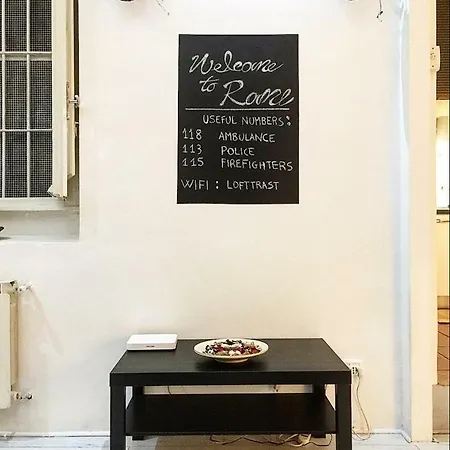 Welcome
to
Rome
USEFUL NUMBERS:
118 AMBULANCE
113 POLICE
115 FIREFIGHTERS
WIFI : LOFTTRAST